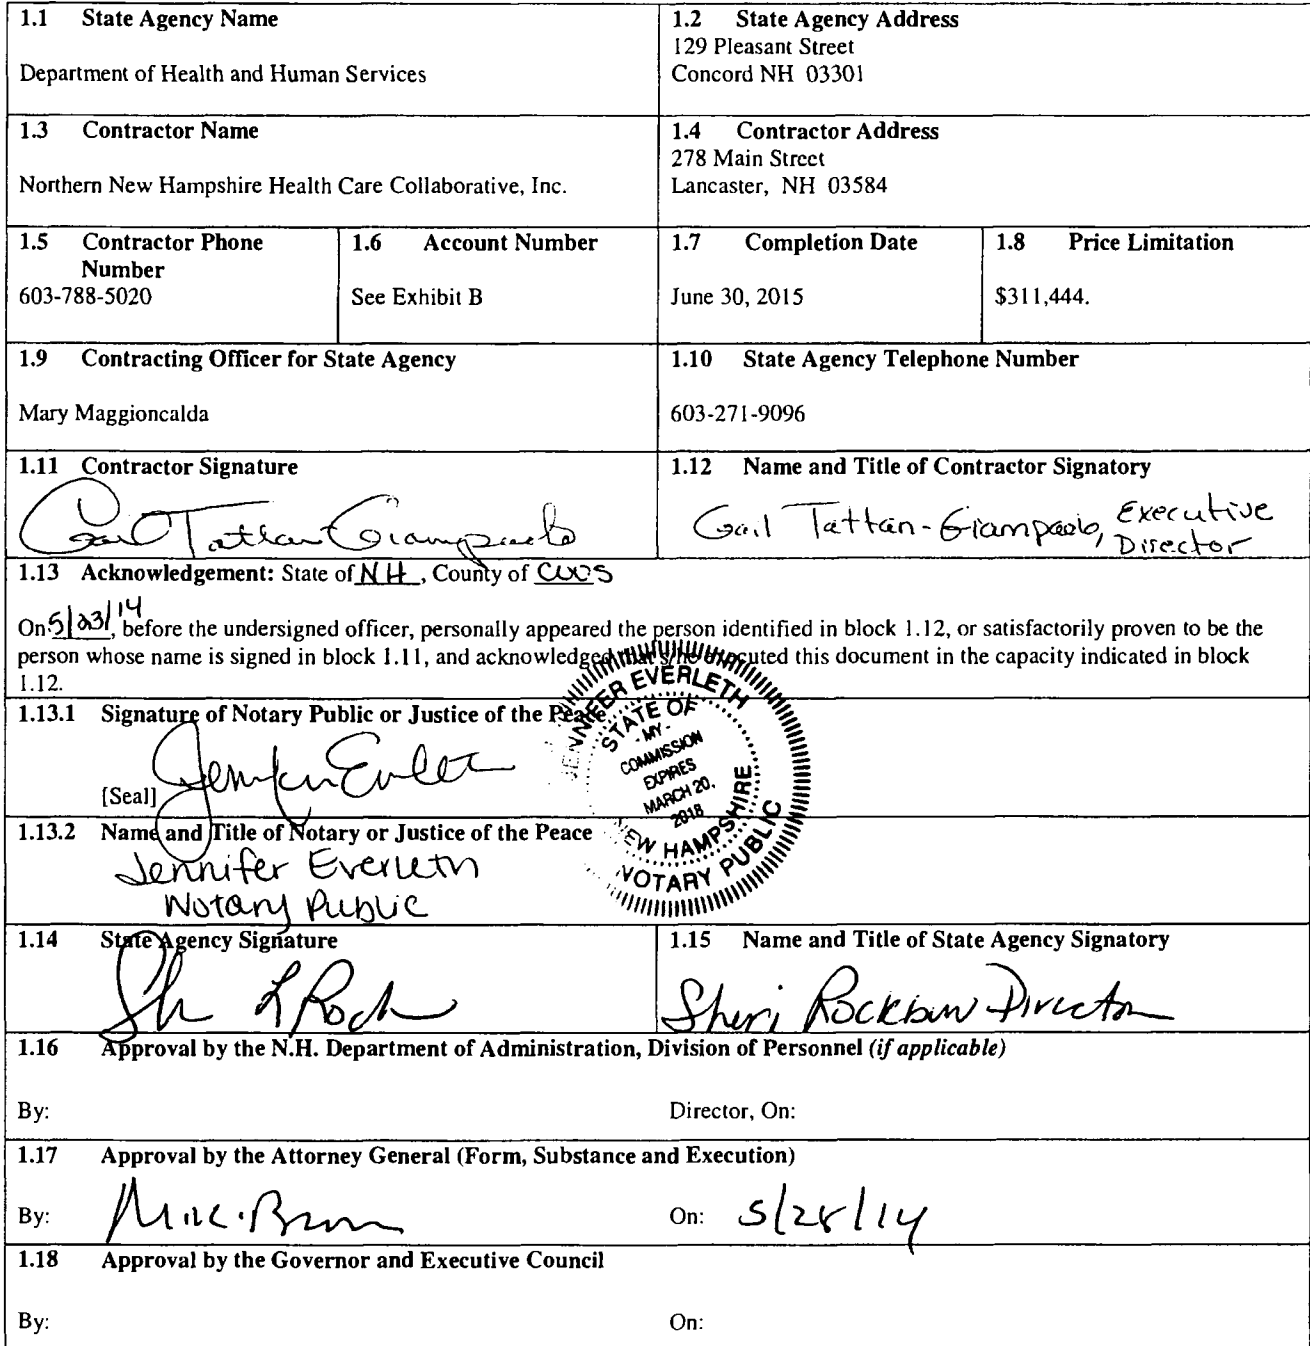 1.1 State Agency Name
Department of Health and Human Services
1.2 State Agency Address
129 Pleasant Street
Concord NH 03301
1.3 Contractor Name
Northern New Hampshire Health Care Collaborative, Inc.
1.4 Contractor Address
278 Main Street
Lancaster, NH 03584
1.5 Contractor Phone
Number
603-788-5020
1.6 Account Number
See Exhibit B
1.7 Completion Date
June 30, 2015
1.8 Price Limitation
$311,444.
1.9 Contracting Officer for State Agency
Mary Maggioncalda
1.10 State Agency Telephone Number
603-271-9096
1.11 Contractor Signature
Gail Tattan-Giampaolo
1.12 Name and Title of Contractor Signatory
Gail Tattan-Giampaolo, Executive
Director
1.13 Acknowledgement: State of NH, County of COOS
On 5/23/14, before the undersigned officer, personally appeared the person identified in block 1.12, or satisfactorily proven to be the
person whose name is signed in block 1.11, and acknowledged that s/he executed this document in the capacity indicated in block
1.12.
1.13.1 Signature of Notary Public or Justice of the Peace
[Seal]
Jennifer Everleth
JENNIFER EVERLETH
STATE OF
- MY -
COMMISSION
EXPIRES
MARCH 20,
2018
NEW HAMPSHIRE
NOTARY PUBLIC
1.13.2 Name and Title of Notary or Justice of the Peace
Jennifer Everleth
Notary Public
1.14 State Agency Signature
1.15 Name and Title of State Agency Signatory
Sheri Rockburn Director
1.16 Approval by the N.H. Department of Administration, Division of Personnel (if applicable)
By:
Director, On:
1.17 Approval by the Attorney General (Form, Substance and Execution)
By:
On: 5/28/14
1.18 Approval by the Governor and Executive Council
By:
On: